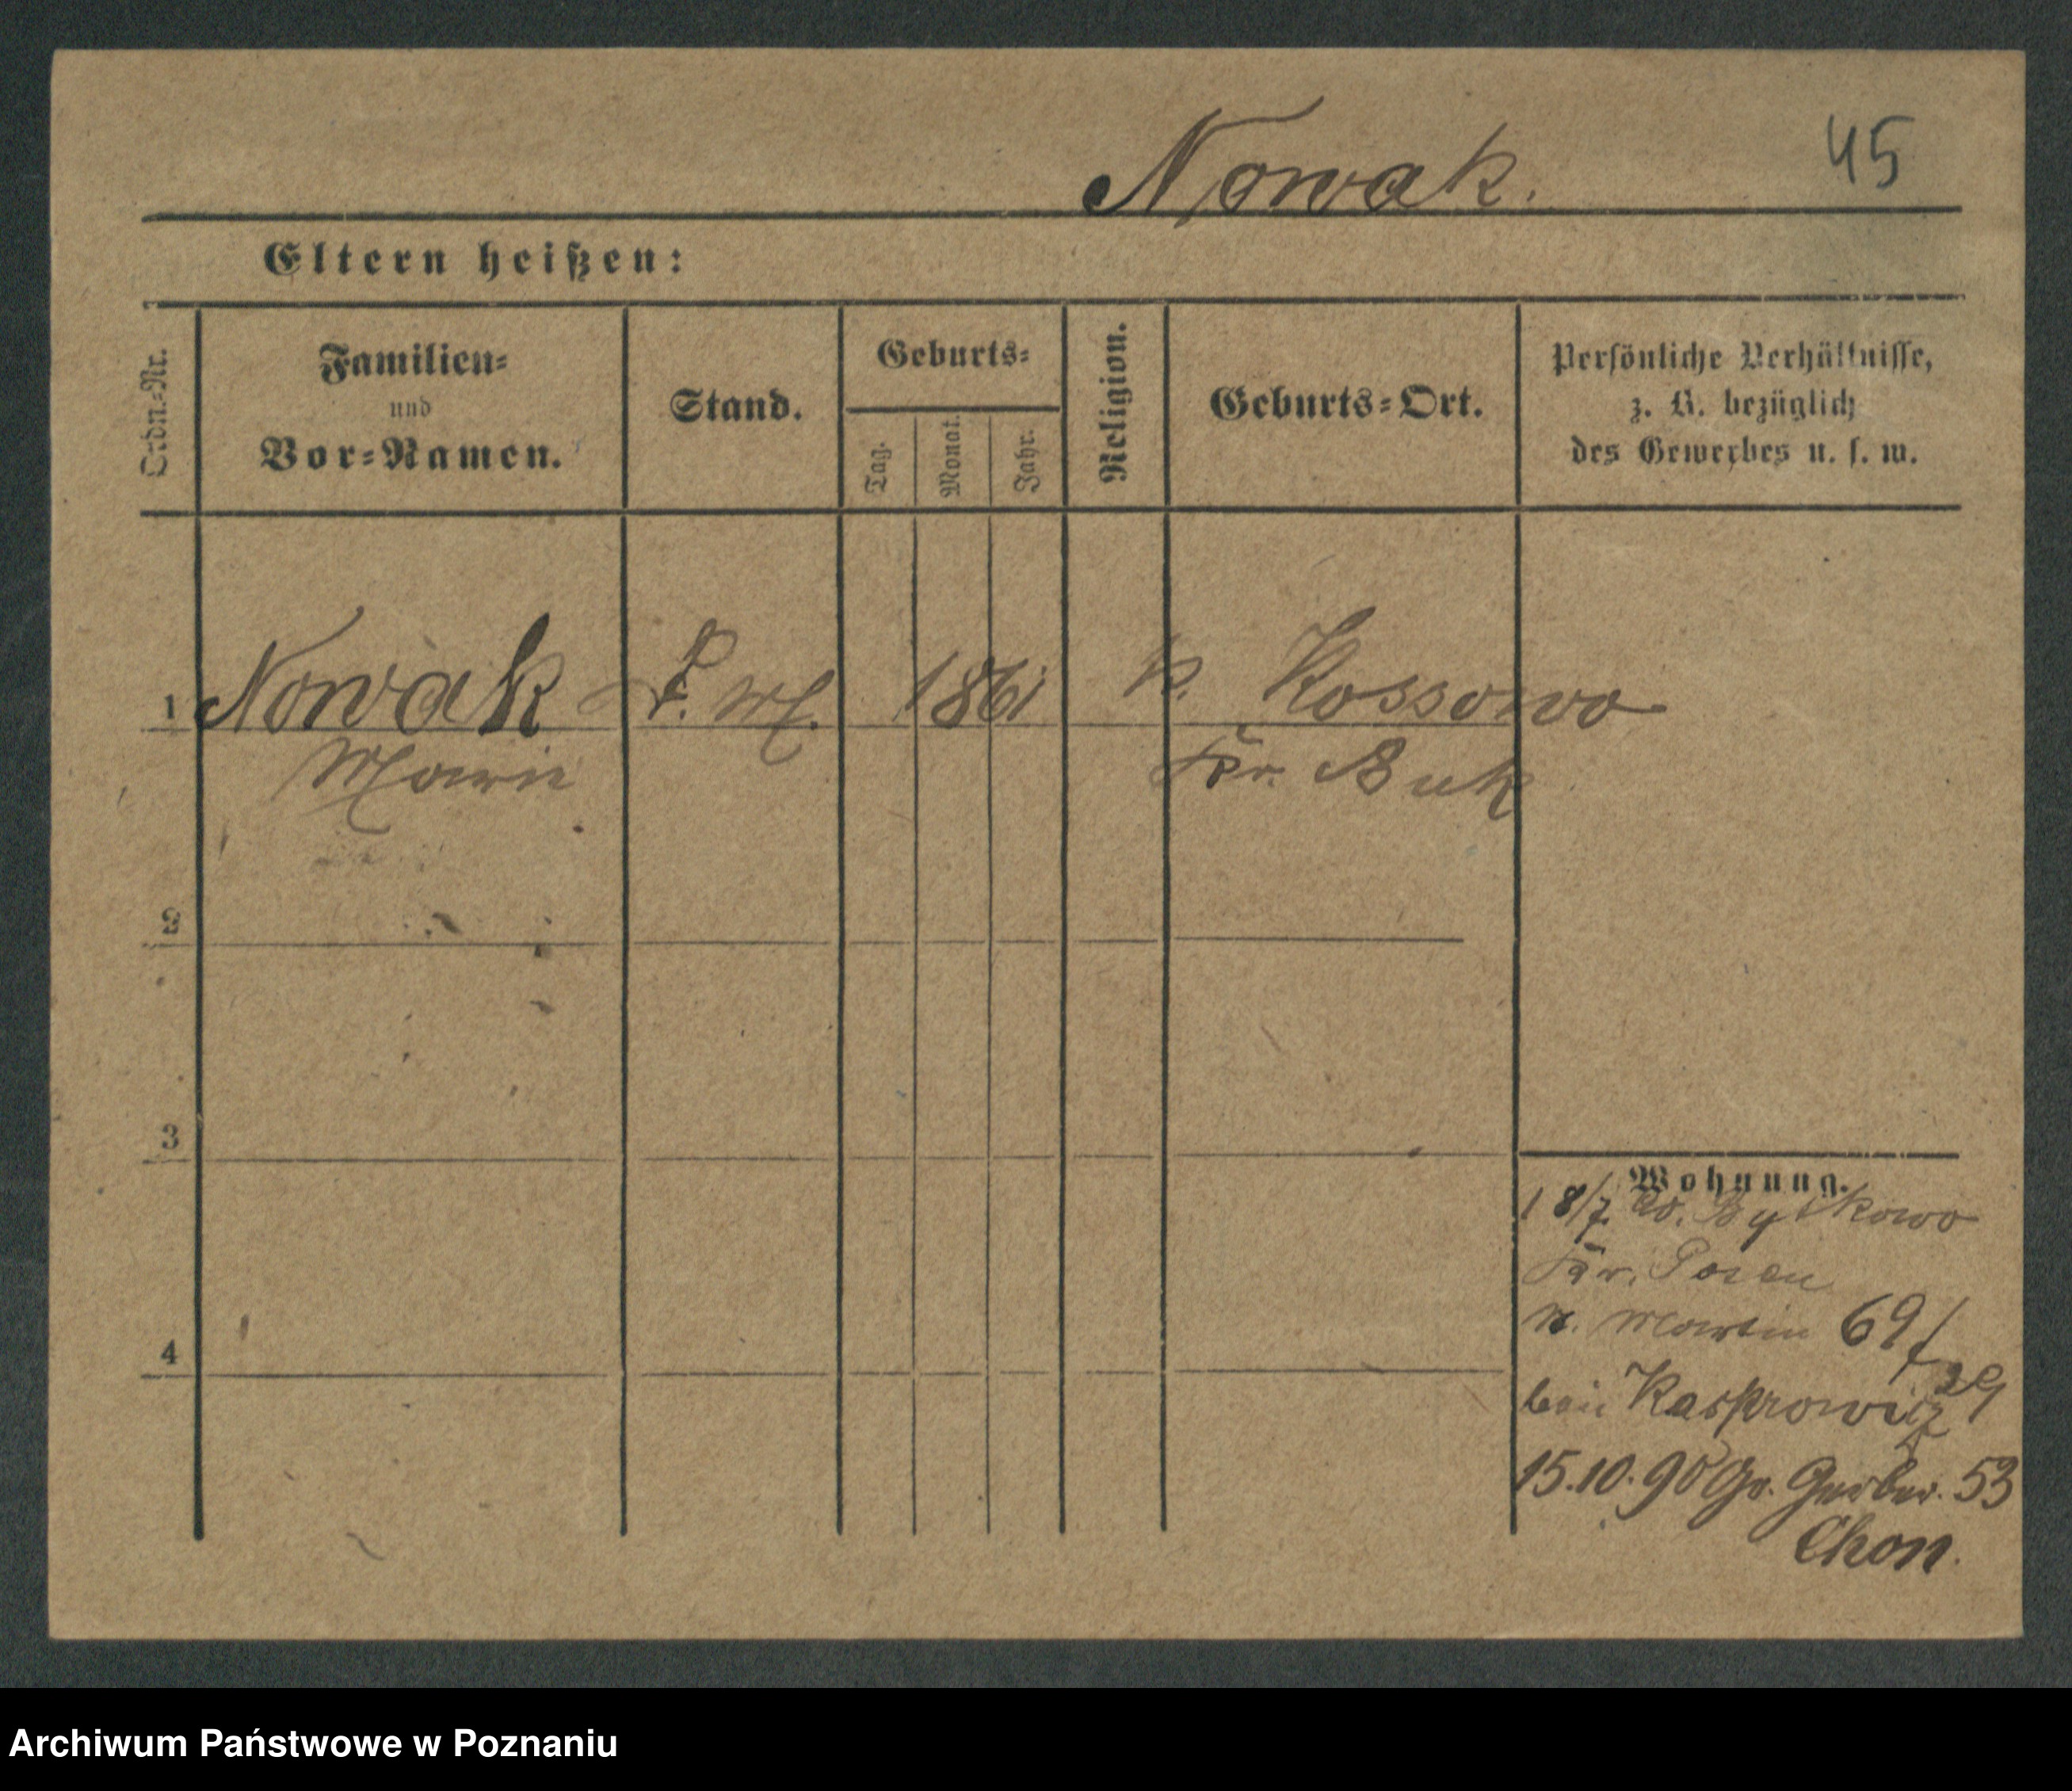 Nowak. 45
Eltern heißen:
Ordn.-Nr.
Familien-
und
Vor-Namen.
Stand.
Geburts-
Tag.
Monat.
Jahr.
Religion.
Geburts-Ort.
Persönliche Verhältnisse,
z. B. bezüglich
des Gewerbes u. s. w.
1 Nowak 1861 k. Kossowo
Marie Kr. Buk
2
3
4
Wohnung.
18/7.
Kr. Posen
Martin 69/
bei Kasprowicz 29
15.10.90 Gr. Gerber. 53
Chon.
Archiwum Państwowe w Poznaniu